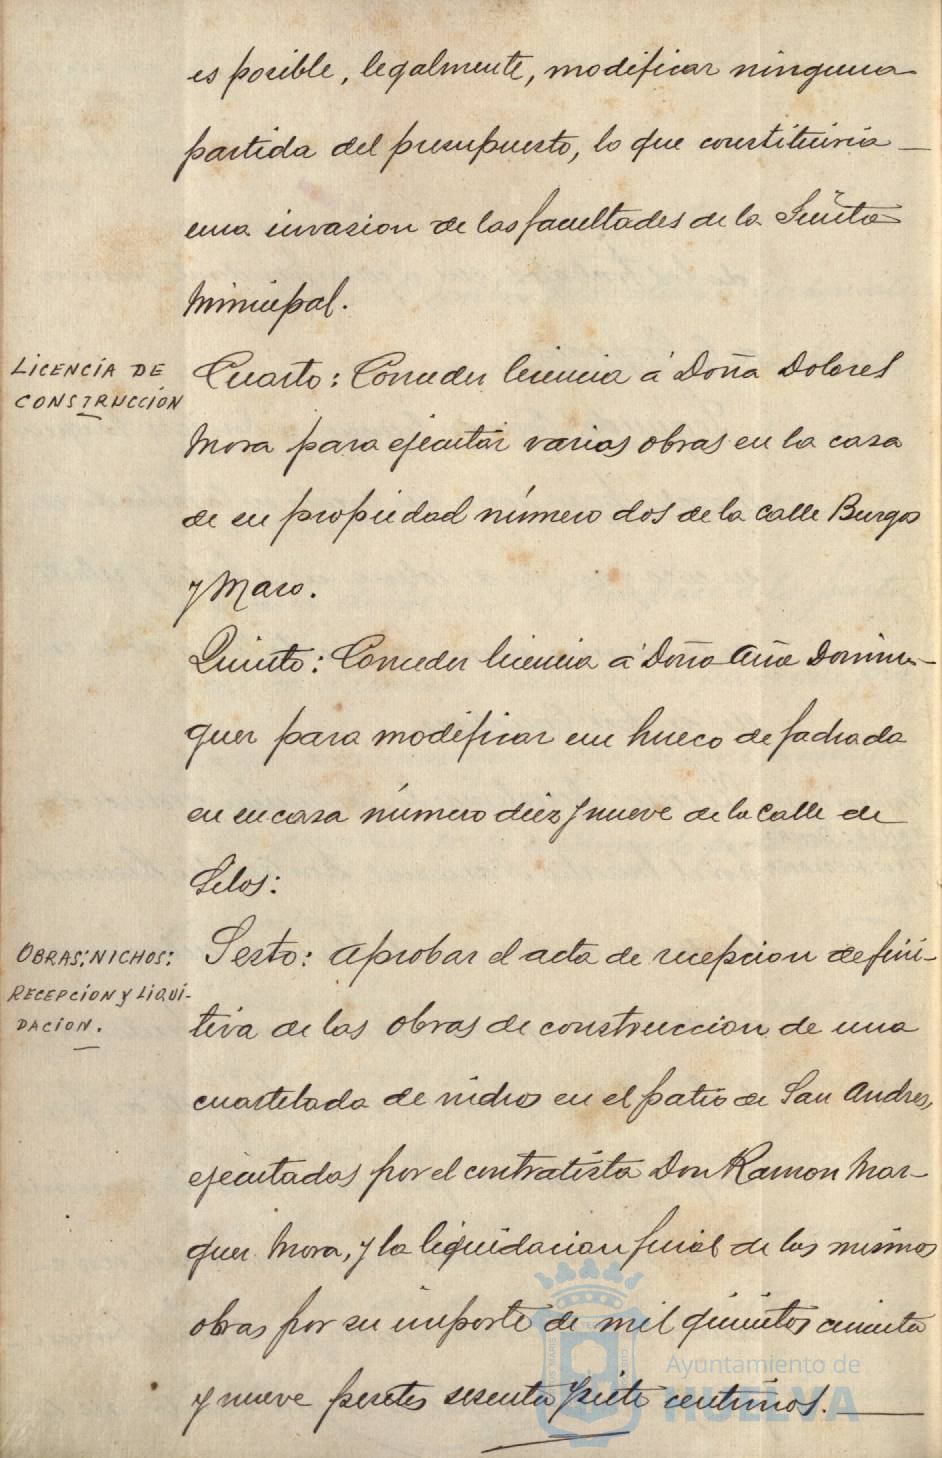 es posible, legalmente, modificar ninguna
partida del presupuesto, lo que constituiria
una invasion de las facultades de la Junta
Municipal.
LICENCIA DE
CONSTRUCCIÓN
Cuarto: Conceder licencia á Doña Dolores
Mora para ejecutar varias obras en la casa
de su propiedad número dos de la calle Burgos
y Maso.
Quinto: Conceder licencia á Doña Ana Domin-
guez para modificar un hueco de fachada
en su casa número diez y nueve de la calle de
OBRAS: NICHOS:
RECEPCION Y LIQUI-
DACION.
Sesto: Aprobar el acta de recepcion defini-
tiva de las obras de construccion de una
cuartelada de nichos en el patio de San Andres,
ejecutadas por el contratista Don Ramon Mar-
quez Mora, y la liquidacion final de las mismas
obras por su importe de mil quinientos cincuenta
y nueve pesetas sesenta y siete centimos.
Ayuntamiento de
HUELVA